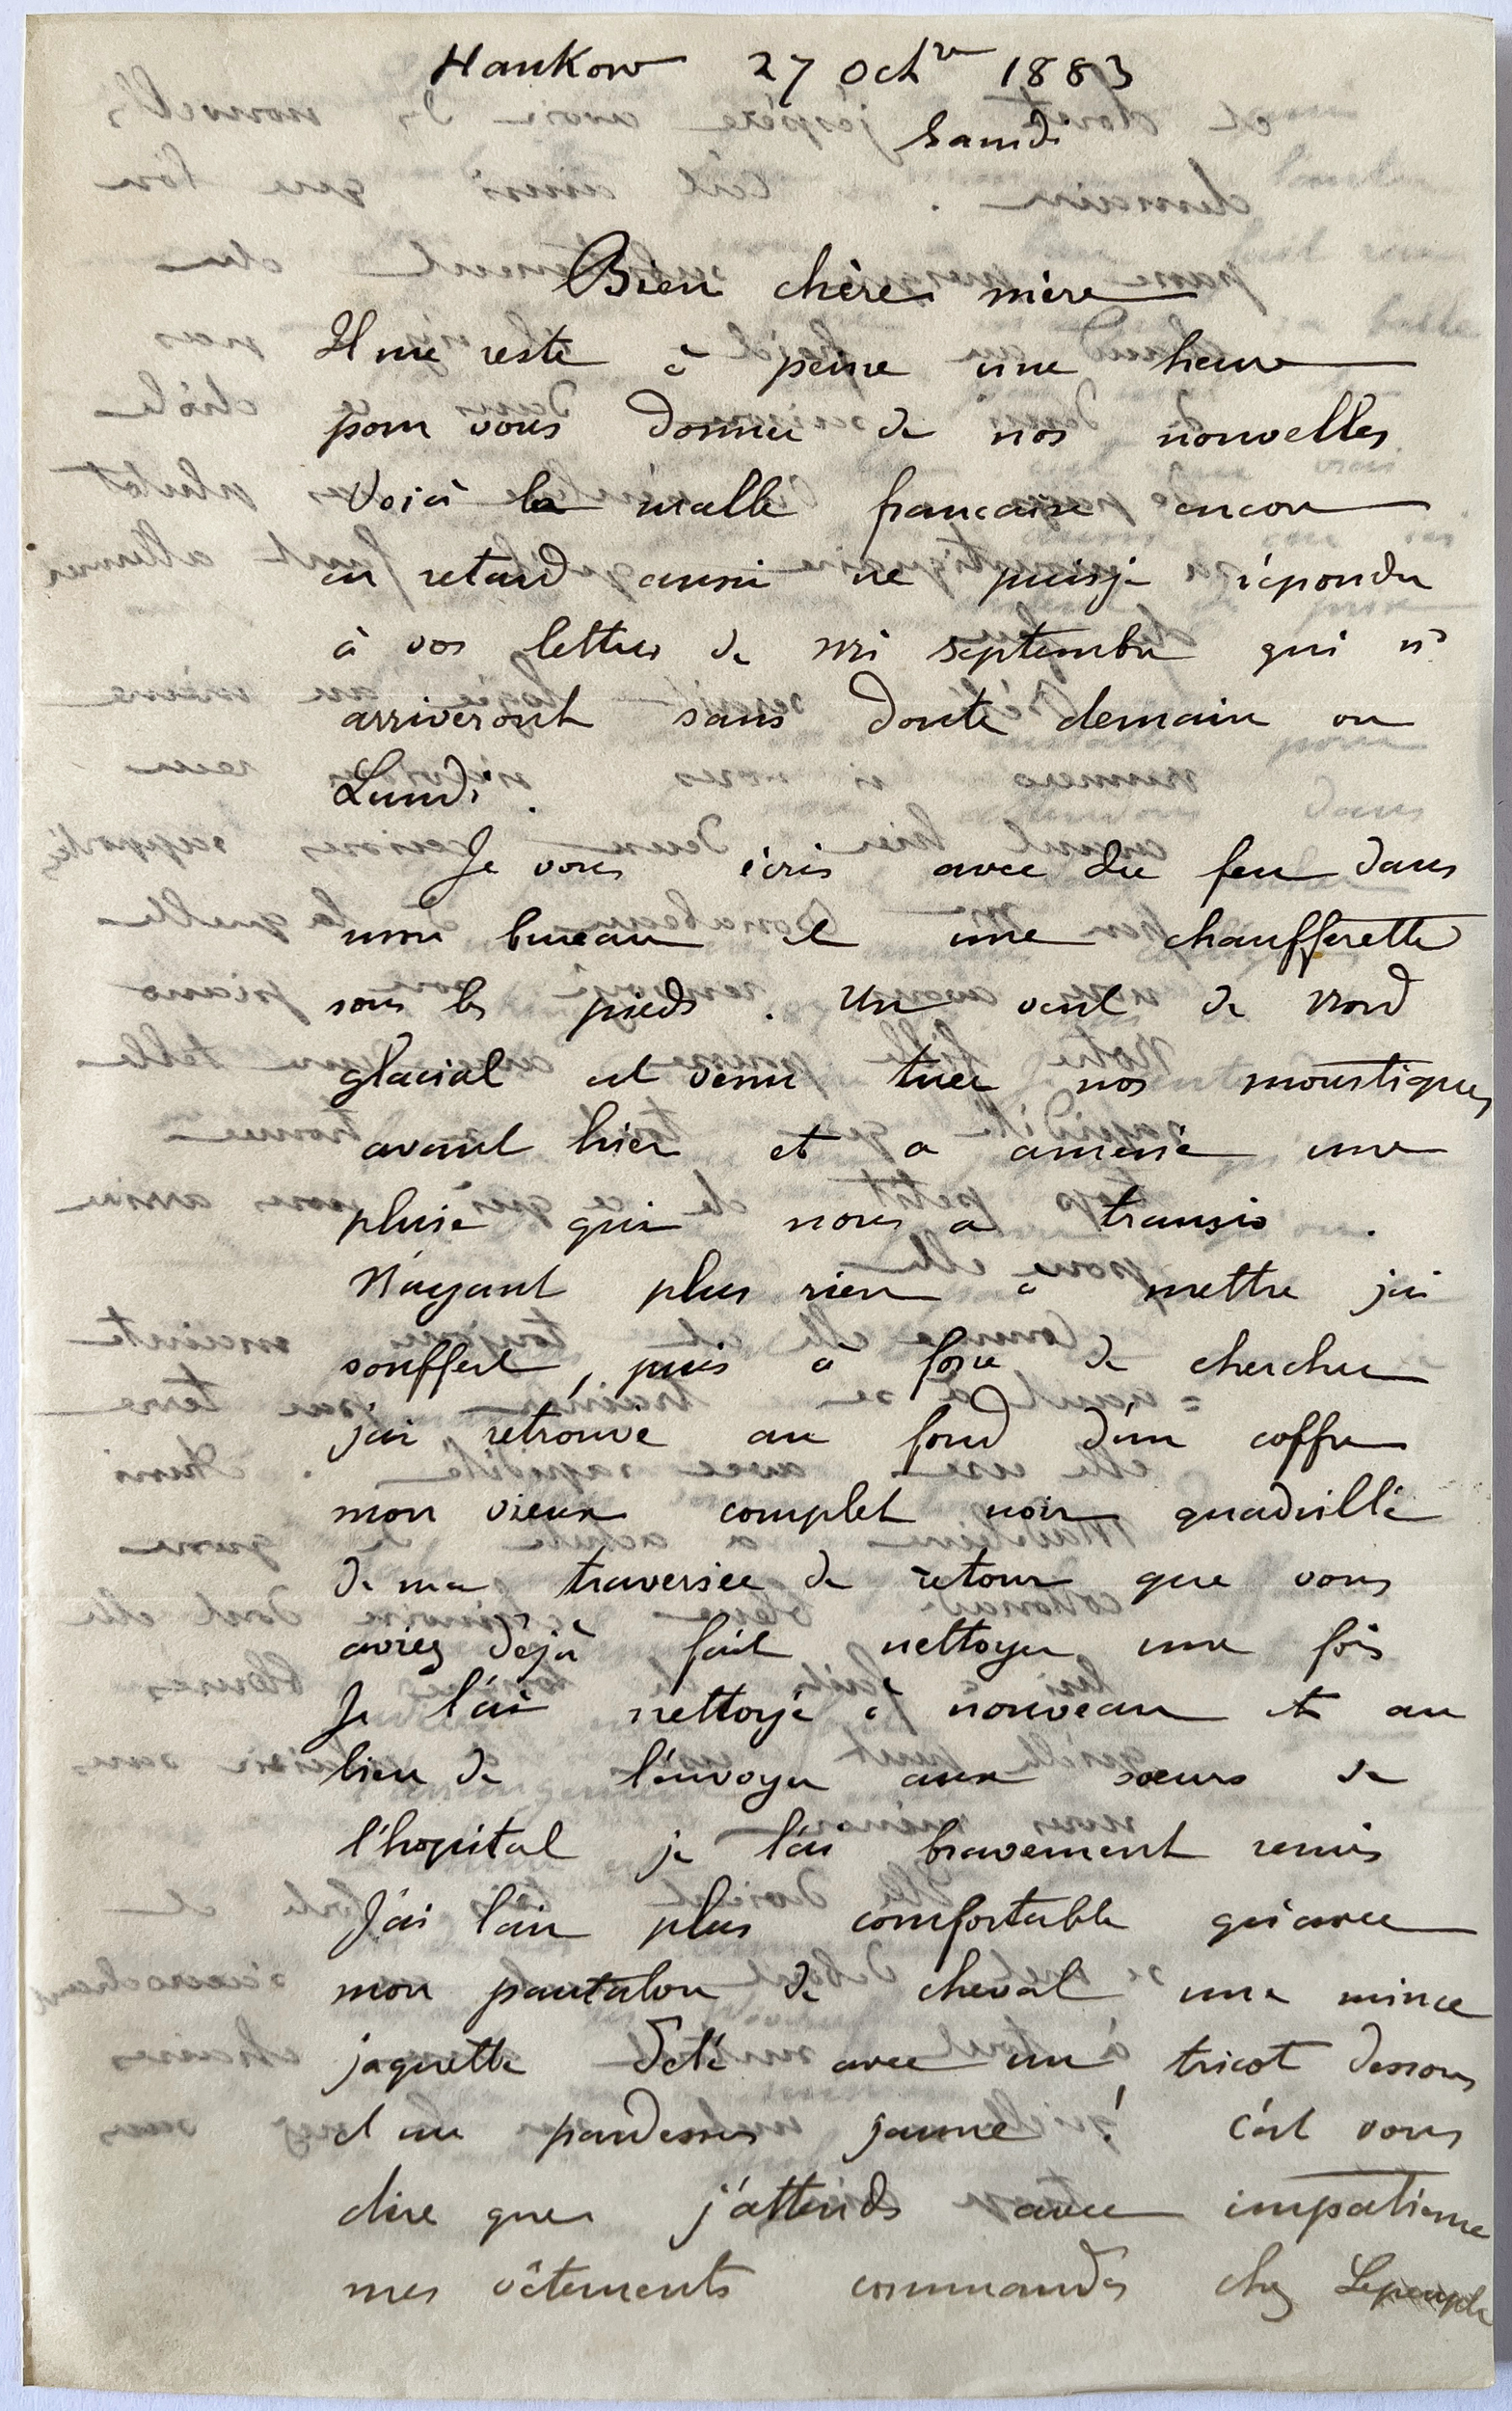 Hankow 27 Octbre 1883
Samdi
Bien chère mère
Il me reste à peine une heure
pour vous donner de nos nouvelles
Voici la malle française encore
en retard aussi ne puisje répondre
à vos lettres de mi septembre qui ns
arriveront sans doute demain ou
Lundi.
Je vous écris avec du feu dans
mon bureau et une chaufferette
sous les pieds. Un vent de nord
glacial est venu tuer nos moustiques
avant hier et a amené une
pluie qui nous a transis.
N'ayant plus rien à mettre j'ai
souffert, puis à force de chercher
j'ai retrouvé au fond d'un coffre
mon vieux complet noir quadrillé
de ma traversée de retour que vous
aviez déjà fait nettoyer une fois
Je l'ai nettoyé à nouveau et au
lieu de l'envoyer aux sœurs de
l'hopital je l'ai bravement remis
J'ai l'air plus comfortable qu'avec
mon pantalon de cheval une mince
jaquette d'été avec un tricot dessous
et un pardessus jaune! C'est vous
dire que j'attends avec impatience
mes vêtements commandés chez